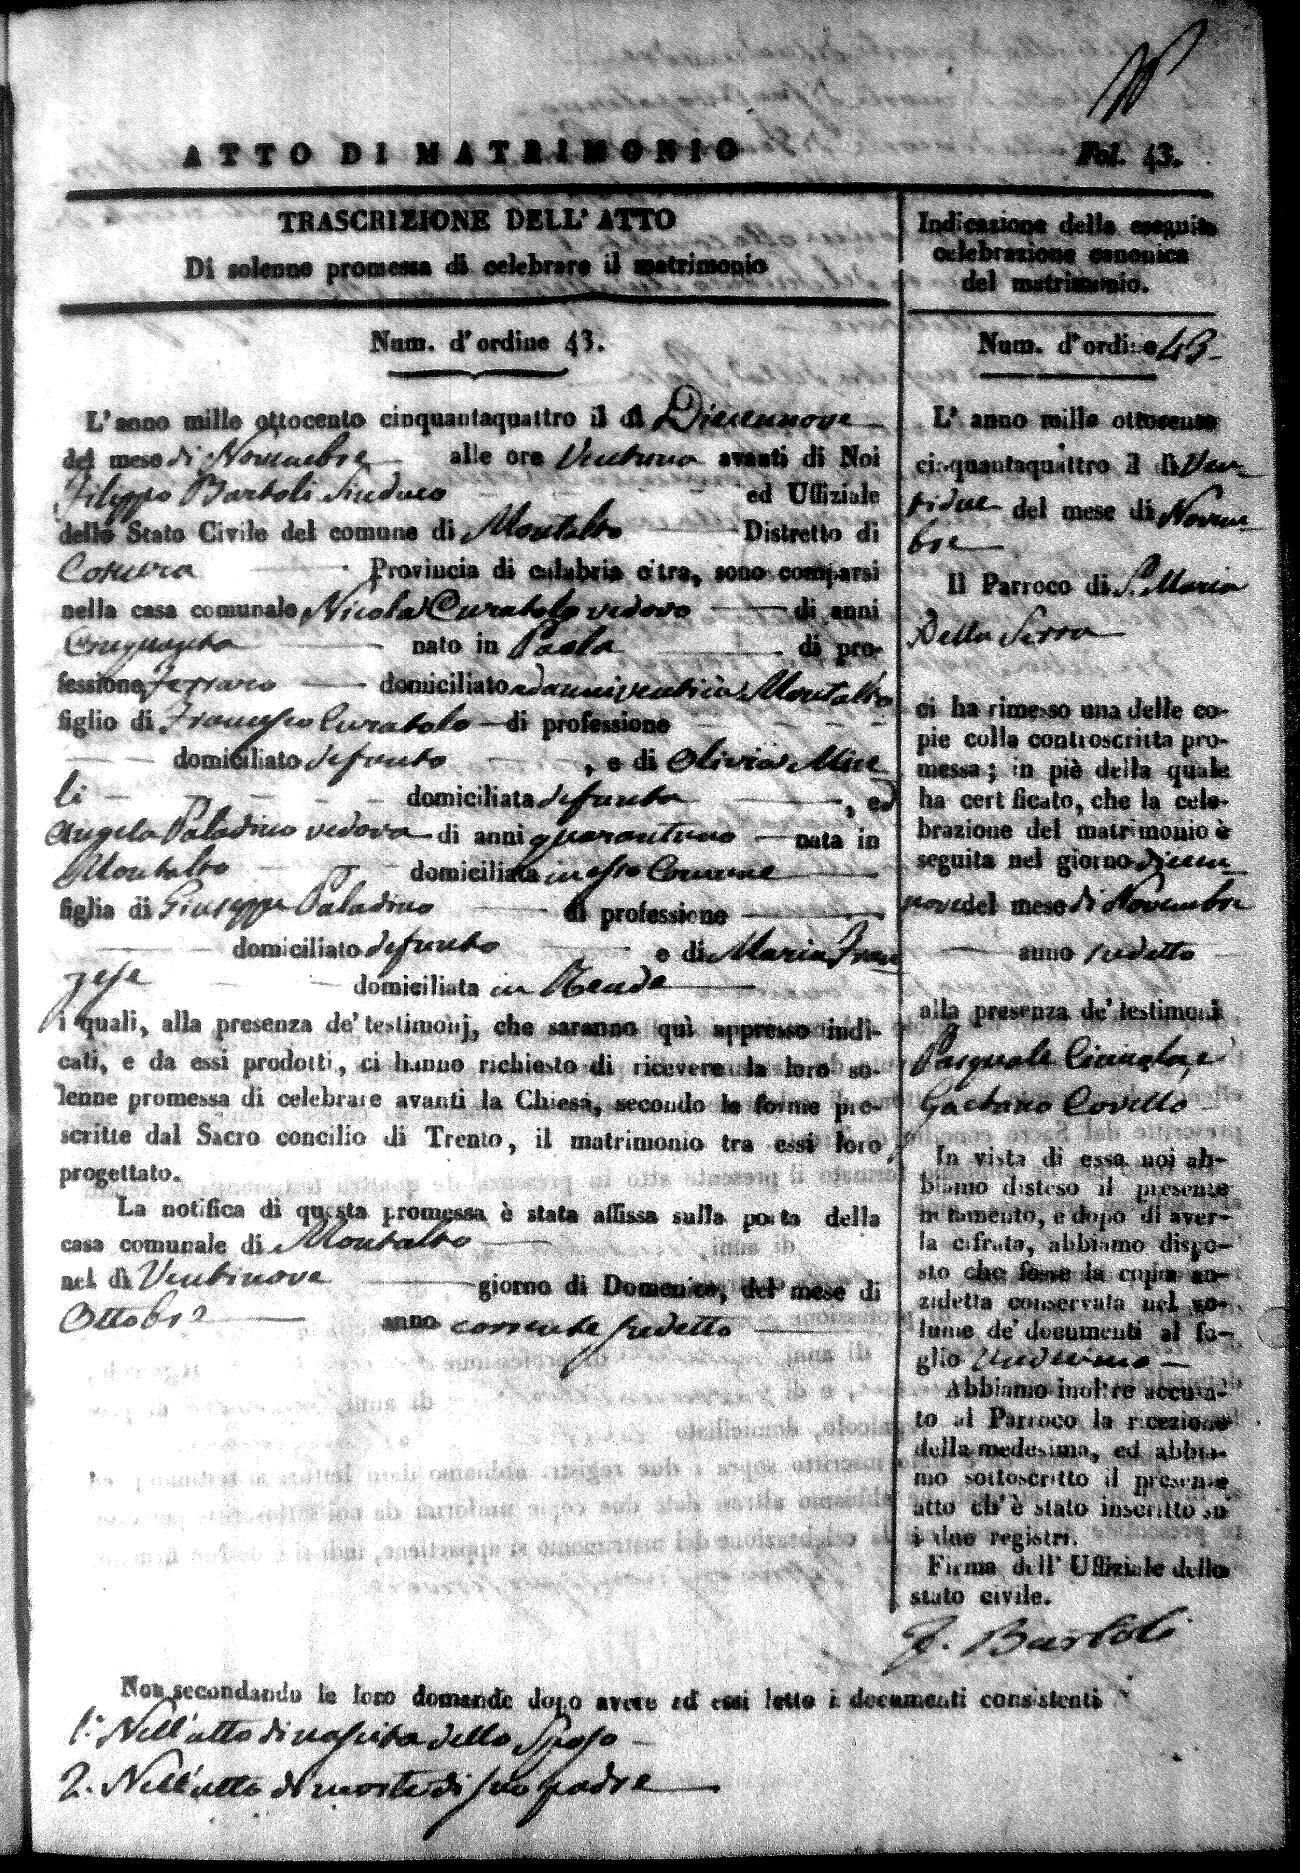 ATTO DI MATRIMONIO
Fol. 43.
TRASCRIZIONE DELL' ATTO
Di solenne promessa di celebrare il matrimonio
Num. d'ordine 43.
L'anno mille ottocento cinquantaquattro il dì Diecennove
del mese di Novembre alle ore Ventuno avanti di Noi
Filippo Bartoli Sindaco ed Uffiziale
dello Stato Civile del comune di Montalto Distretto di
Cosenza Provincia di calabria citra, sono comparsi
nella casa comunale Nicola Curatolo vedovo di anni
Cinquanta nato in Paola di pro-
fessione Ferraro domiciliato Montalto
figlio di Francesco Curatolo di professione
domiciliato defunto , e di Olivia Mice
li domiciliata defunta , ed
Angela Paladino vedova di anni quarantuno nata in
Montalto domiciliata in esso Comune
figlia di Giuseppe Paladino di professione
domiciliato defunto e di Maria Fran
zese domiciliata in Rende
i quali, alla presenza de' testimonj, che saranno quì appresso indi-
cati, e da essi prodotti, ci hanno richiesto di ricevere la loro so-
lenne promessa di celebrare avanti la Chiesa, secondo le forme pre-
scritte dal Sacro concilio di Trento, il matrimonio tra essi loro
progettato.
La notifica di questa promessa è stata affissa sulla porta della
casa comunale di Montalto
nel dì Ventinove giorno di Domenica, del mese di
Ottobre anno corrente sudetto
Non secondando le loro domande dopo avere ad essi letto i documenti consistenti
1.° Nell'atto di nascita dello Sposo
2. Nell'atto di morte di suo padre
Indicazione della seguita
celebrazione canonica
del matrimonio.
Num. d'ordine 43
L' anno mille ottocento
cinquantaquattro il dì Ven
tidue del mese di Novem
bre
Il Parroco di S. Maria
Della Serra
ci ha rimesso una delle co-
pie colla controscritta pro-
messa; in piè della quale
ha certificato, che la cele-
brazione del matrimonio è
seguita nel giorno diecen
nove del mese di Novembre
anno sudetto
alla presenza de' testimoni
Pasquale e
Gaetano Covello
In vista di essa noi ab-
biamo disteso il presente
notamento, e dopo di aver-
la cifrata, abbiamo dispo-
sto che fosse la copia an-
zidetta conservata nel vo-
lume de' documenti al fo-
glio
Abbiamo inoltre accusa-
to al Parroco la ricezione
della medesima, ed abbia-
mo sottoscritto il presente
atto ch'è stato inscritto su
i due registri.
Firma dell' Uffiziale dello
stato civile.
F. Bartoli